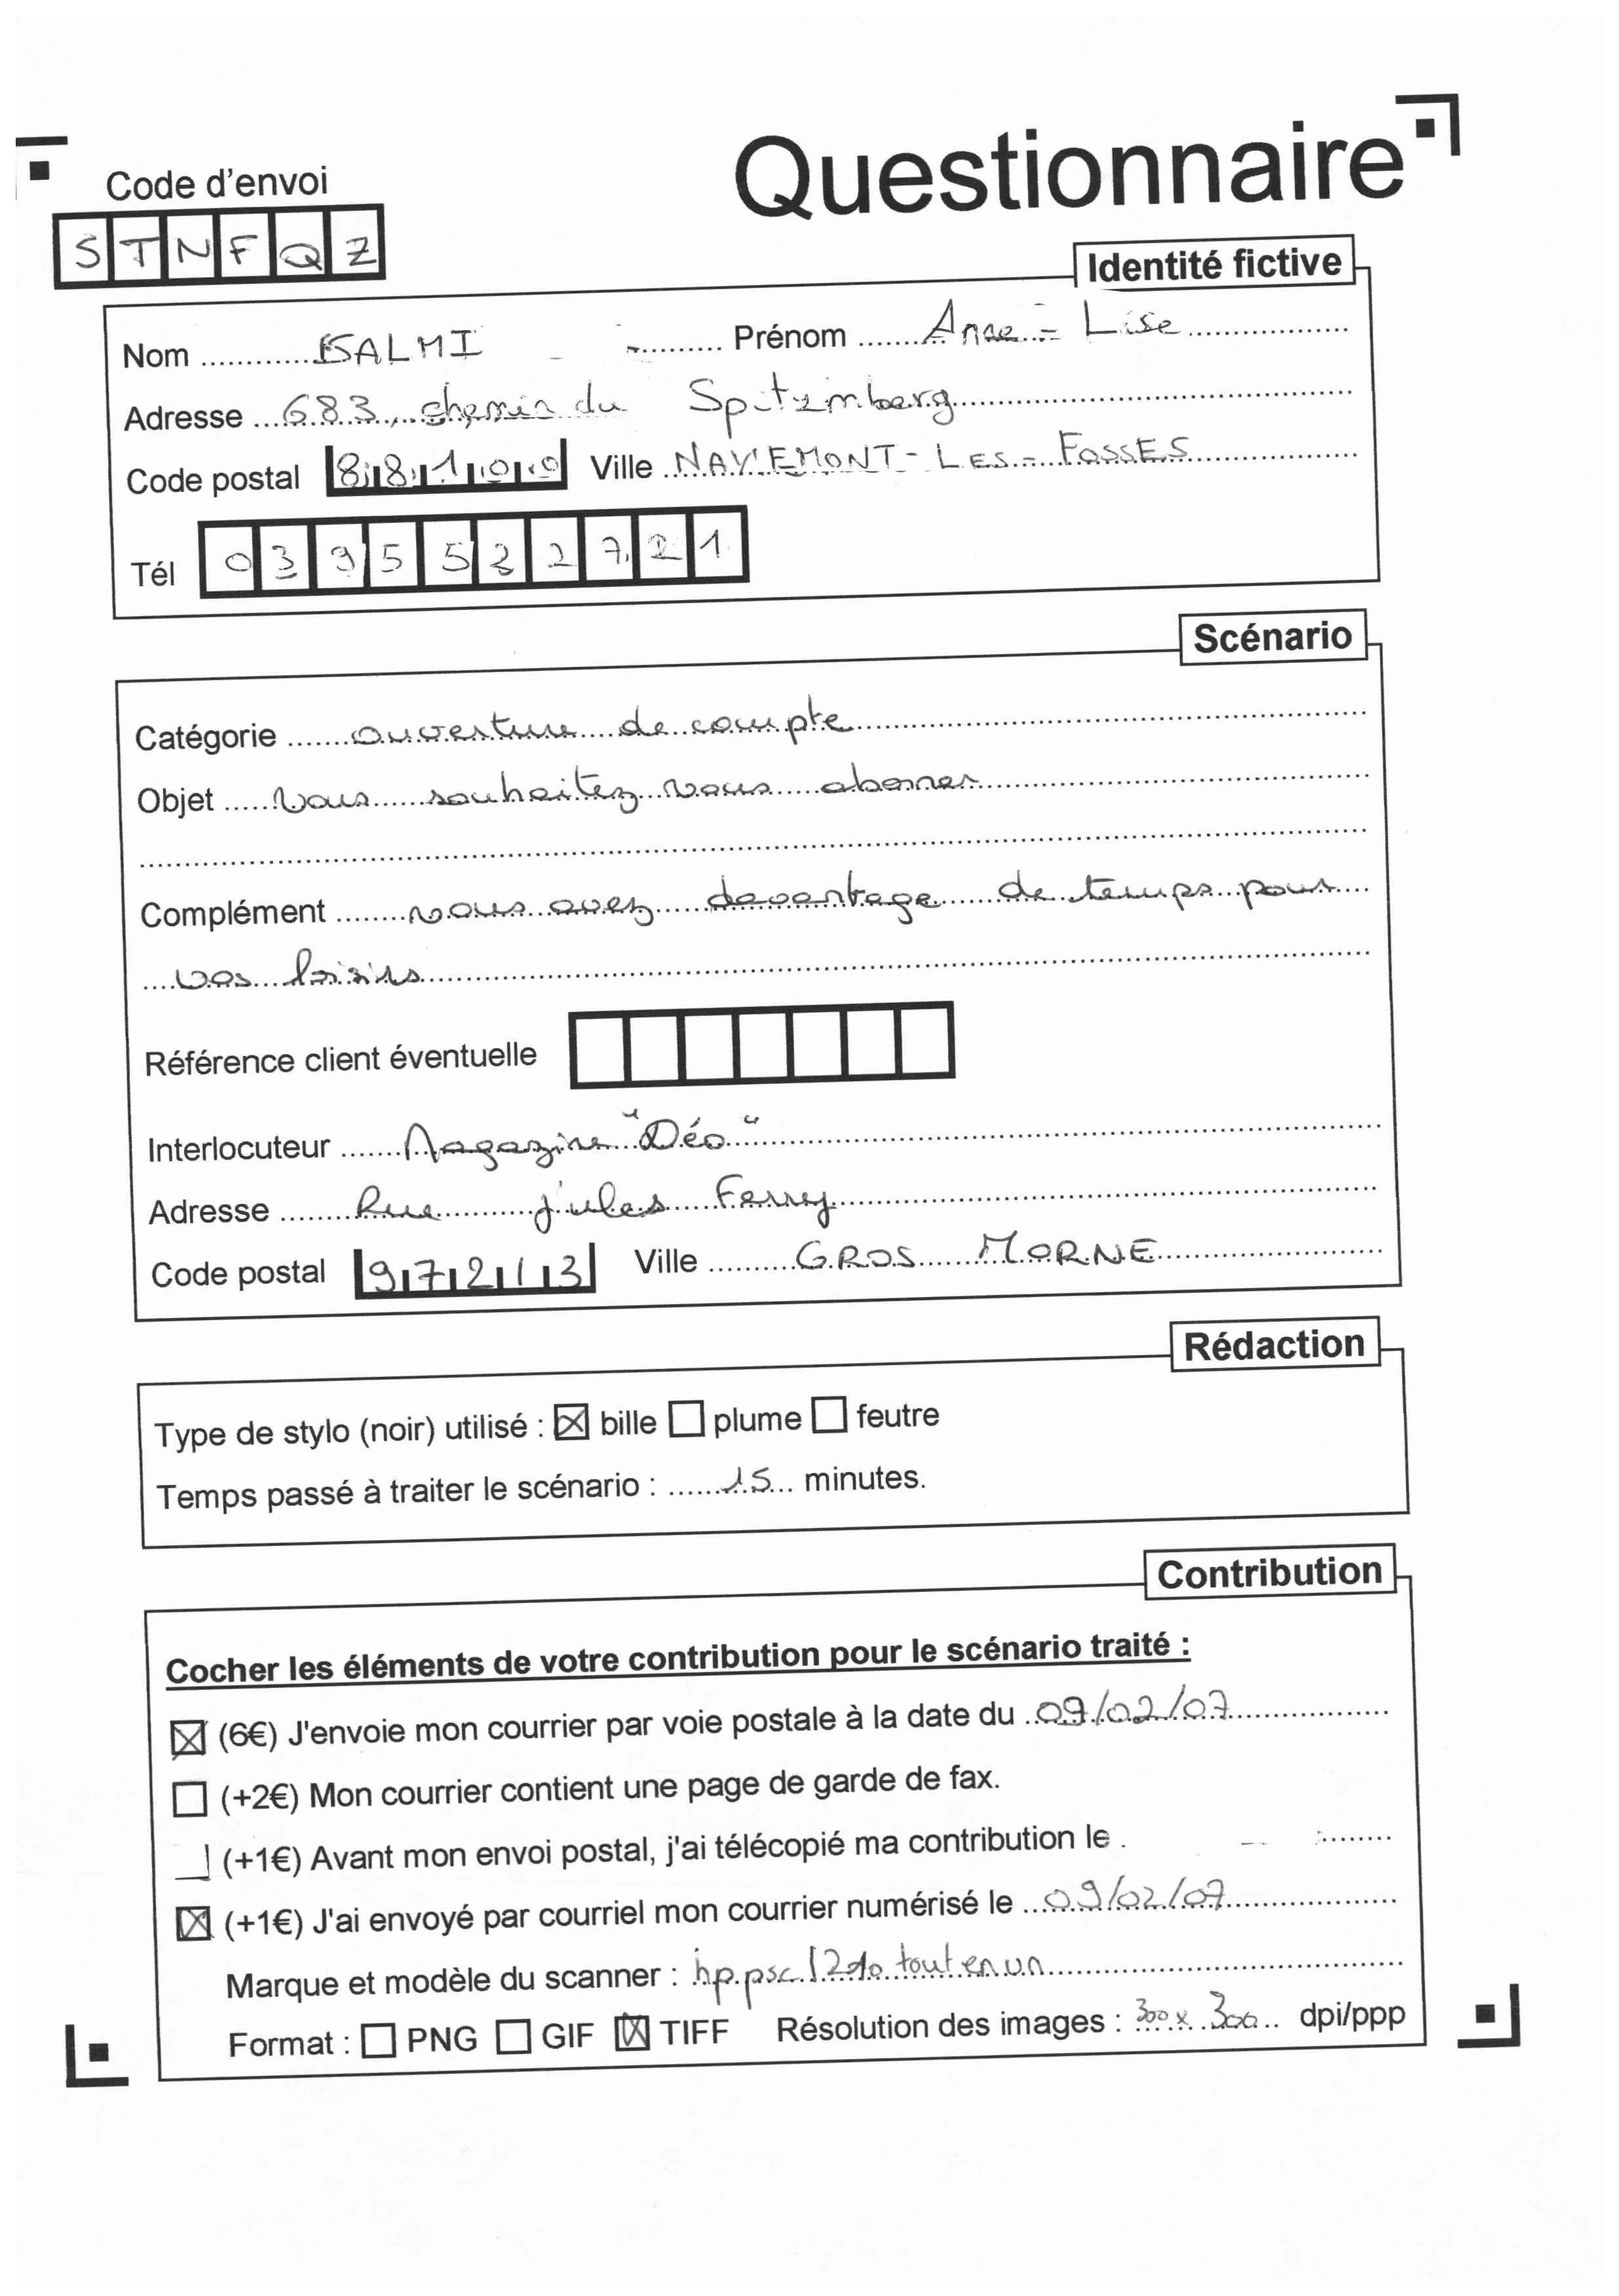 Questionnaire
Code d'envoi
STNFQZ
Identité fictive
Nom SALMI Prénom Anne-Lise
Adresse 683, chemin du Spitzmberg
Code postal 88100 Ville NAYEMONT-LES-FOSSES
Tél 0395522721
Scénario
Catégorie ouverture de compte
Objet Vous souhaitez vous abonner
Complément vous avez davantage de temps pour
vos loisirs
Référence client éventuelle
Interlocuteur Magazine "Déo"
Adresse Rue jules Ferry
Code postal 97213 Ville GROS MORNE
Rédaction
Type de stylo (noir) utilisé : ☒ bille ☐ plume ☐ feutre
Temps passé à traiter le scénario : 15 minutes.
Contribution
Cocher les éléments de votre contribution pour le scénario traité :
☒ (6€) J'envoie mon courrier par voie postale à la date du 09/02/07
☐ (+2€) Mon courrier contient une page de garde de fax.
☐ (+1€) Avant mon envoi postal, j'ai télécopié ma contribution le
☒ (+1€) J'ai envoyé par courriel mon courrier numérisé le 09/02/07
Marque et modèle du scanner : hp psc 1210 tout en un
Format : ☐ PNG ☐ GIF ☒ TIFF Résolution des images : 300 x 300 dpi/ppp